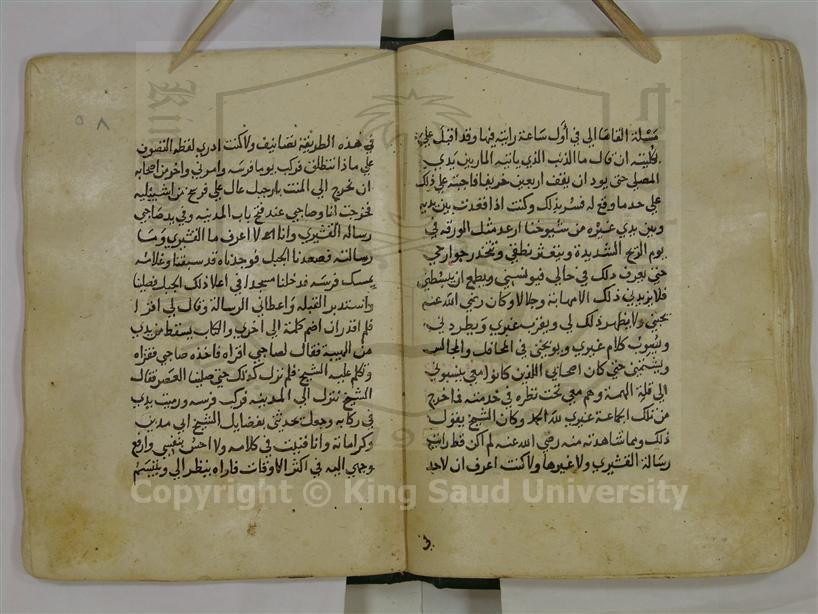 مسئلة القاها الي في أول ساعة رايته فيها وقد اقبل علي
كليته ان قال ما الذنب الذي ياتيه المار بين يدي
المصلي حتى يود ان يقف اربعين خريفا فاجبته على ذلك
على حد ما وقع له فسر بذلك وكنت اذا قعدت بين يديه
وبين يدي غيره من شيوخنا ارعد مثل الورقة في
يوم الريح الشديدة ويتغير نطقي وتخدر جوارحي
حتى يعرف ذلك في حالي فيونسني ويطمع ان يبسطني
فلا يزيدني ذلك الا مهابة وجلالا وكان رضي الله عنه
يحبني ولا يظهر ذلك لي ويقرب غيري ويطردني
ويصوب كلام غيري ويوبخني في المحافل والمجالس
ويشتمني حتى كان اصحابي اللذين كانوا معي ينسبوني
الى قلة الهمة وهم معي تحت نظره في خدمته فما خرج
من تلك الجماعة غيري لله الحمد وكان الشيخ يقول
ذلك ومما شاهدته منه رضي الله عنه لم اكن قط رايت
رسالة القشيري ولا غيرها ولا كنت اعرف ان لاحد
في هذه الطريقة تصانيف ولا كنت ادري لفظة التصوف
على ماذا تنطلق فركب يوما فرسه وامرني واخر من اصحابه
ان نخرج الى المنت بار جبل عال على فرسخ من اشبيلية
فخرجت انا وصاحبي عند فتح باب المدينه وفي يد صاحبي
رسالة القشيري وانا لا اعرف ما القشيري وما
رسالته فصعدنا الجبل فوجدناه قد سبقنا وغلامه
يمسك فرسه فدخلنا مسجدا في اعلا ذلك الجبل فصلينا
واستدبر القبلة واعطاني الرسالة وقال لي اقرا
فلم اقدر ان اضم كلمة الى اخرى والكتاب يسقط من يدي
من الهيبة فقال لصاحبي اقراه فاخذه صاحبي فقراه
وتكلم عليه الشيخ فلم نزل كذلك حتى صلينا العصر فقال
الشيخ ننزل الى المدينه فركب فرسه ورميت يدي
في ركابه وجعلت يحدثني بفضايل الشيخ ابي مدين
وكراماته وانا فنيت في كلامه ولا احس بنفسي وارفع
وجهي اليه في اكثر الاوقات فاراه ينظر الي ويتبسم
٥٨
Copyright © King Saud University